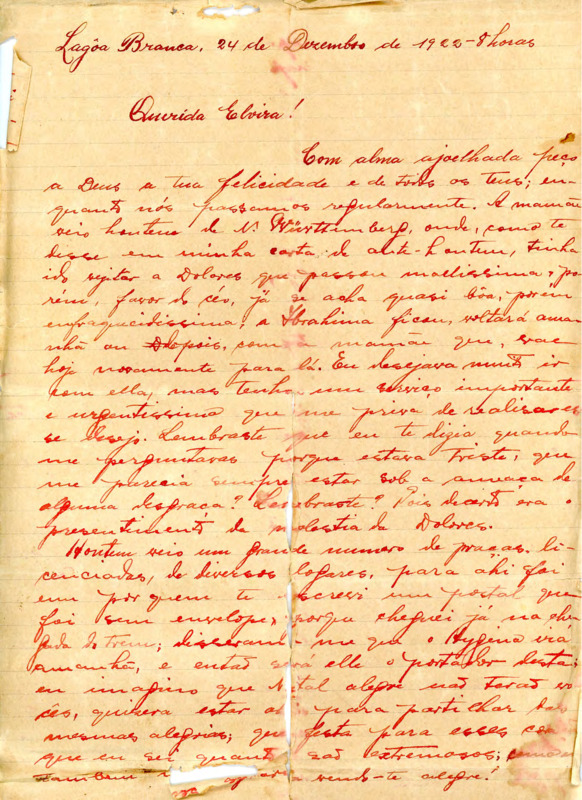 Lagôa Branca, 24 de Dezembro de 1922 - 8 horas
Querida Elvira!
Com alma ajoelhada peço
a Deus a tua felicidade e de todos os teus; en-
quanto nós passamos regularmente. A mamãe
veio hontem de N. Württemberg, onde, como te
disse em minha carta de ante-hontem, tinha
ido vizitar a Dolores que passou mallissima, po-
rém, favor do céo, já se acha quasi bôa, porem
enfraquecidissima; a Ibrahima ficou, voltará ama-
nhã ou depois, com a mamãe que, vae
hoje novamente para lá. Eu desejava muito ir
com ella, mas tenho um serviço importante
e urgentissimo que me priva de realisar es-
se desejo. Lembraste que eu te dizia quando
me perguntavas porque estava triste, que
me parecia sempre estar sob a ameaça de
alguma desgraça? Lembraste? Pois decerto era o
presentimento da molestia da Dolores.
Hontem veio um grande numero de praças li-
cenciadas, de diversos logares, para ahi foi
um por quem te escrevi um postal que
foi sem enveloppe, porque cheguei já na che-
gada do trem; disseram-me que o Hygeno vae
amanhã, e então será elle o portador desta;
eu imagino que Natal alegre não terão vo-
cês, quizera estar ahi para partilhar das
mesmas alegrias; que festa para esses
que eu sei quanto são extremosos;
tambem vendo-te alegre!